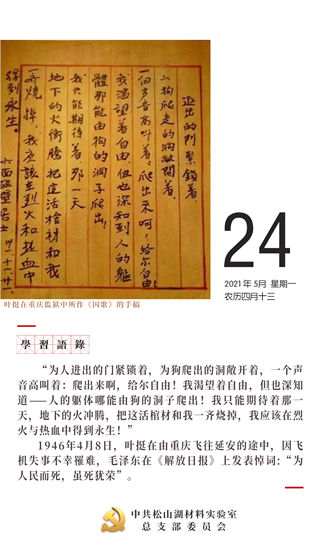 的門緊鎖着、
狗爬走的洞敞開着。
一個声音高叫着:爬出来呵,给尔自由!
我渴望着自由,但也深知到人的軀
體那能由狗的洞子爬出!
我只能期待着那一天
地下的火衝騰把這活棺材和我
一齊燒掉,我应該在烈火和热血中
得到永生。
六面碰壁居士
24
2021年 5月 星期一
农历四月十三
叶挺在重庆监狱中所作《囚歌》的手稿
學習語錄
“为人进出的门紧锁着,为狗爬出的洞敞开着,一个声
音高叫着:爬出来啊,给尔自由!我渴望着自由,但也深知
道——人的躯体哪能由狗的洞子爬出!我只能期待着那一
天,地下的火冲腾,把这活棺材和我一齐烧掉,我应该在烈
火与热血中得到永生!”
1946年4月8日,叶挺在由重庆飞往延安的途中,因飞
机失事不幸罹难,毛泽东在《解放日报》上发表悼词:“为
人民而死,虽死犹荣”。
中共松山湖材料实验室
总支部委员会